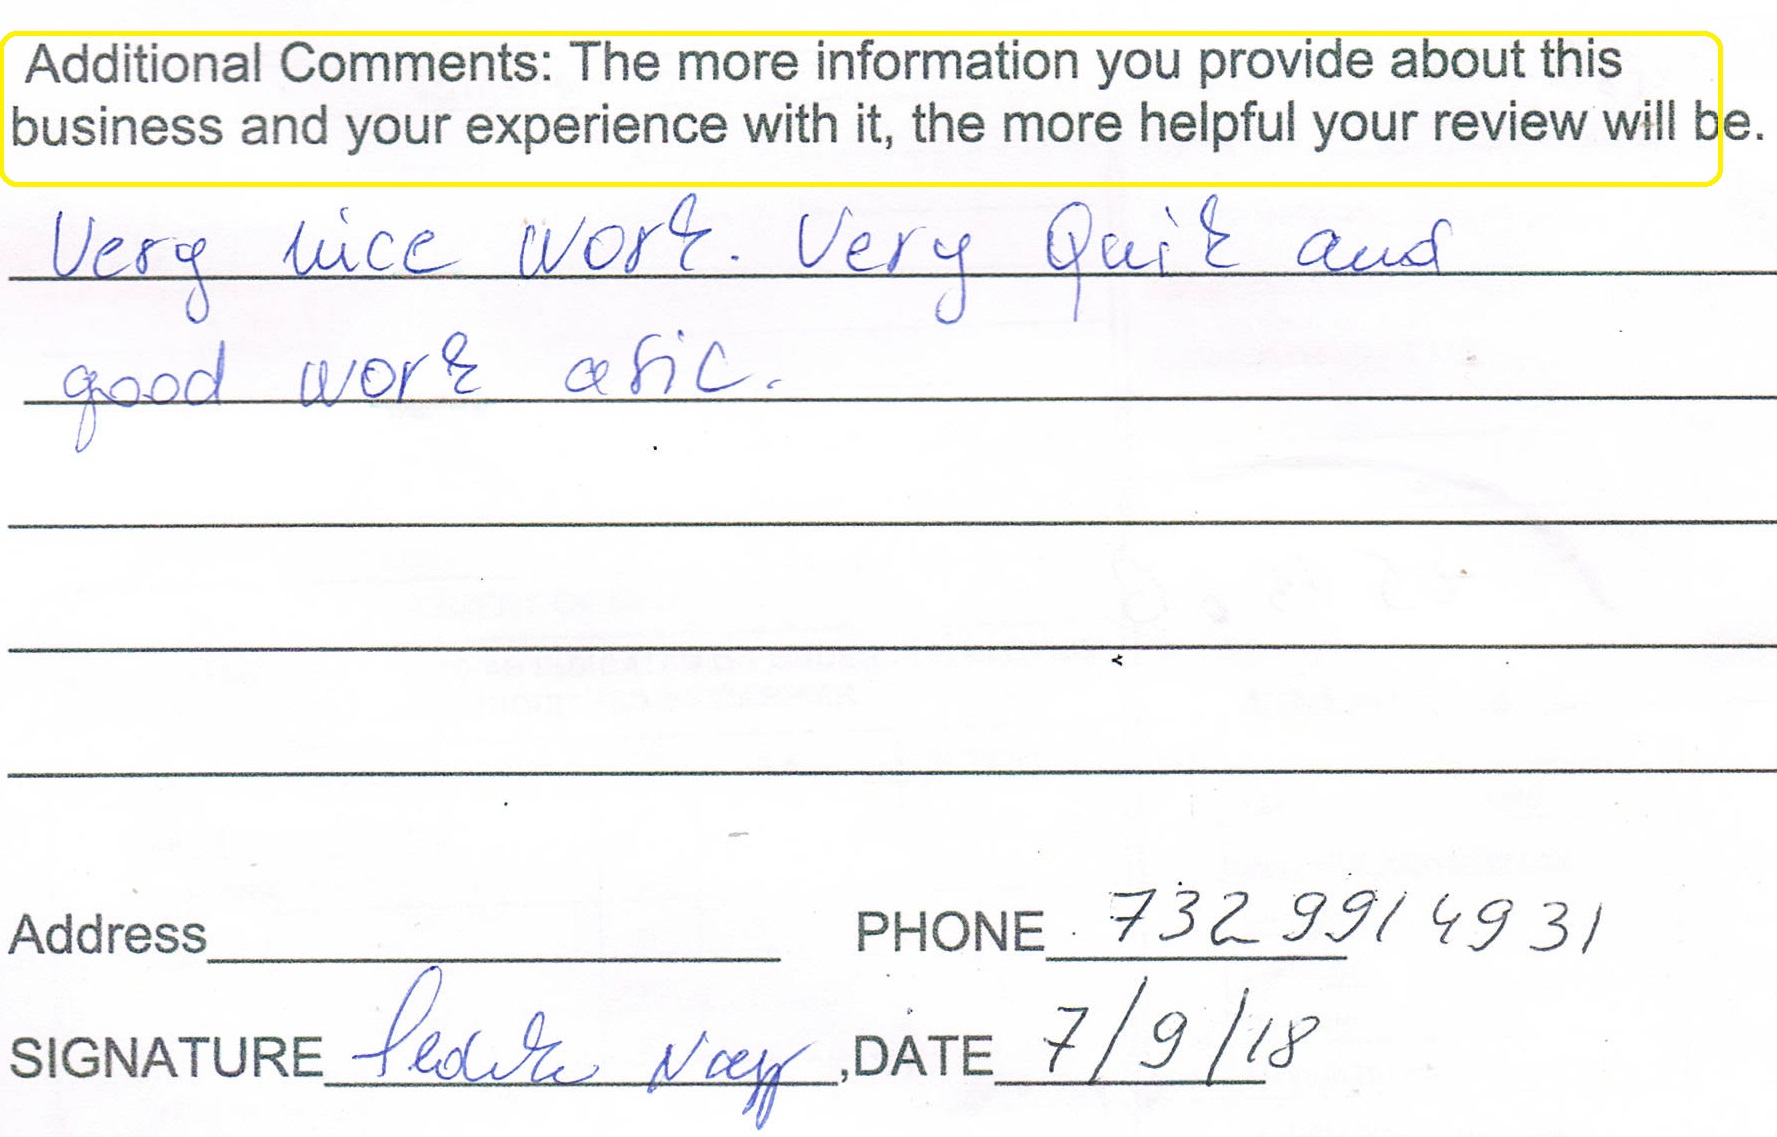 Additional Comments: The more information you provide about this
business and your experience with it, the more helpful your review will be.
Very nice work. Very Quik and
good work
Address PHONE 732 991 4931
SIGNATURE ,DATE 7/9/18